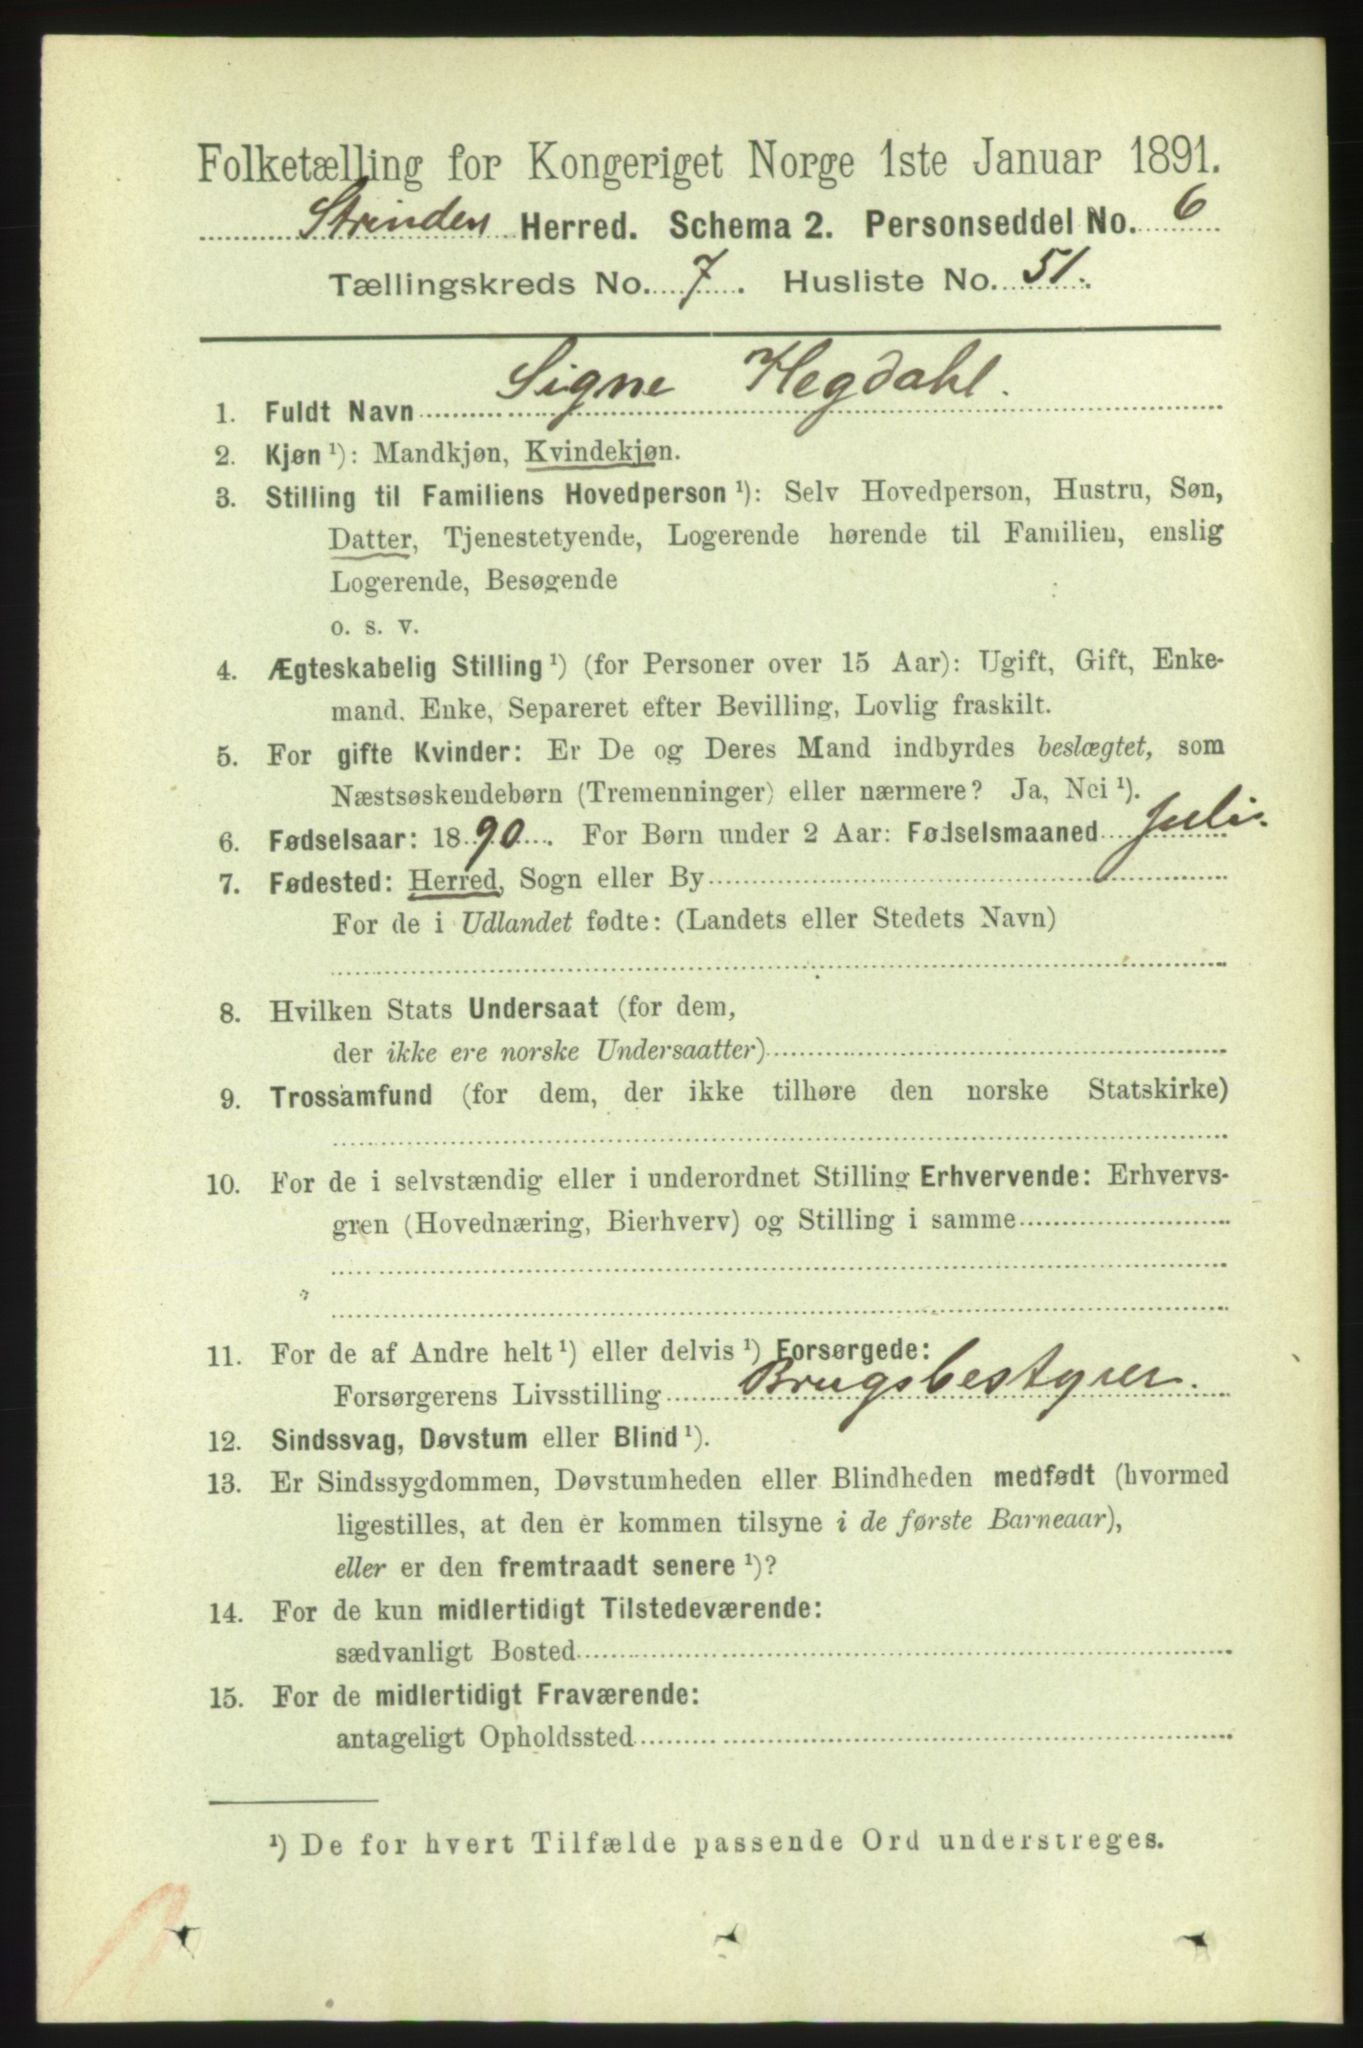 Folketælling for Kongeriget Norge 1ste Januar 1891.
Strinden Herred. Schema 2. Personseddel No. 6
Tællingskreds No. 7. Husliste No. 51.
1. Fuldt Navn Signe Hegdahl.
2. Kjøn ¹): Mandkjøn, Kvindekjøn.
3. Stilling til Familiens Hovedperson ¹): Selv Hovedperson, Hustru, Søn,
Datter, Tjenestetyende, Logerende hørende til Familien, enslig
Logerende, Besøgende
o. s. v.
4. Ægteskabelig Stilling ¹) (for Personer over 15 Aar): Ugift, Gift, Enke-
mand, Enke, Separeret efter Bevilling, Lovlig fraskilt.
5. For gifte Kvinder: Er De og Deres Mand indbyrdes beslægtet, som
Næstsøskendebørn (Tremenninger) eller nærmere? Ja, Nei ¹).
6. Fødselsaar: 1890. For Børn under 2 Aar: Fødselsmaaned Juli.
7. Fødested: Herred, Sogn eller By
For de i Udlandet fødte: (Landets eller Stedets Navn)
8. Hvilken Stats Undersaat (for dem,
der ikke ere norske Undersaatter)
9. Trossamfund (for dem, der ikke tilhøre den norske Statskirke)
10. For de i selvstændig eller i underordnet Stilling Erhvervende: Erhvervs-
gren (Hovednæring, Bierhverv) og Stilling i samme
11. For de af Andre helt ¹) eller delvis ¹) Forsørgede:
Forsørgerens Livsstilling Brugsbestyrer.
12. Sindssvag, Døvstum eller Blind ¹).
13. Er Sindssygdommen, Døvstumheden eller Blindheden medfødt (hvormed
ligestilles, at den er kommen tilsyne i de første Barneaar),
eller er den fremtraadt senere ¹)?
14. For de kun midlertidigt Tilstedeværende:
sædvanligt Bosted
15. For de midlertidigt Fraværende:
antageligt Opholdssted
¹) De for hvert Tilfælde passende Ord understreges.